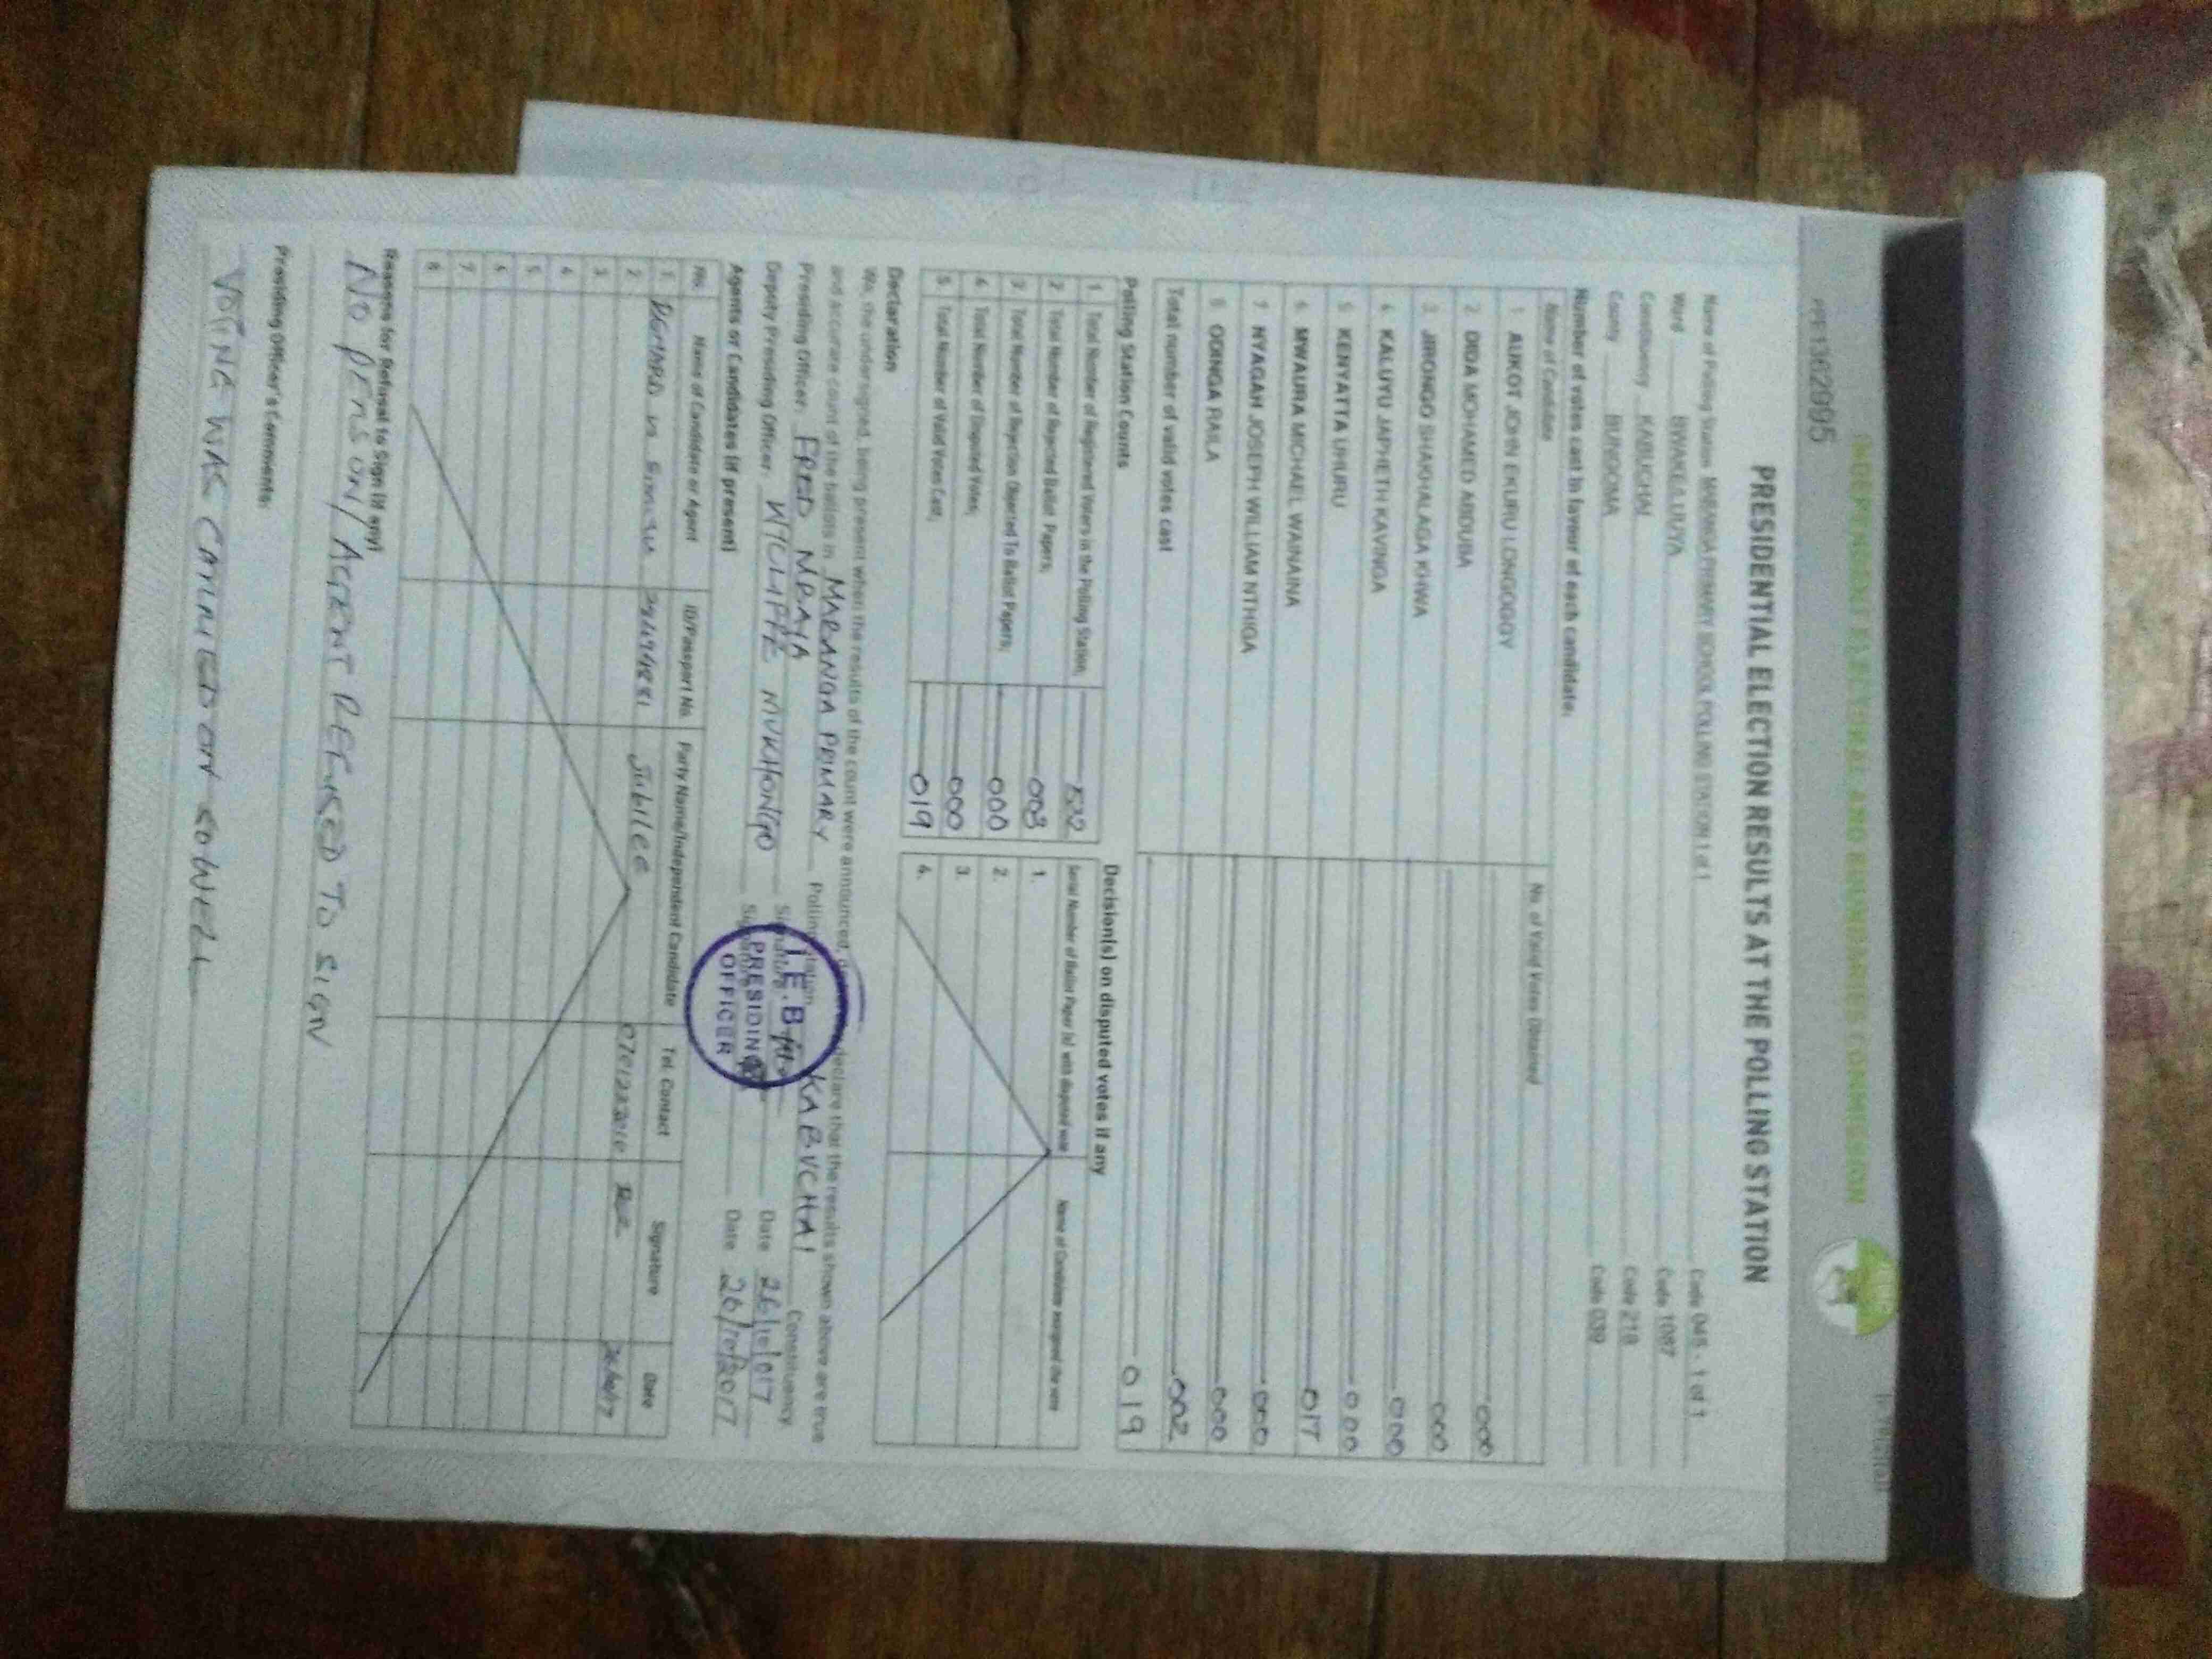 INDEPENDENT ELECTORAL AND BOUNDARIES COMMISSION
PRE1362995
PRESIDENTIAL ELECTION RESULTS AT THE POLLING STATION
Name of Polling Station MABANGA PRIMARY SCHOOL POLLING STATION 1 of 1 Code 045 - 1 of 1
Ward BWAKE/LUUYA Code 1087
Constituency KABUCHAI Code 218
County BUNGOMA Code 039
Number of votes cast in favour of each candidate:
Name of Candidate No. of Valid Votes Obtained
1 AUKOT JOHN EKURU LONGOGGY 000
2 DIDA MOHAMED ABDUBA 000
3 JIRONGO SHAKHALAGA KHWA 000
4 KALUYU JAPHETH KAVINGA 000
5 KENYATTA UHURU 017
6 MWAURA MICHAEL WAINAINA 000
7 NYAGAH JOSEPH WILLIAM NTHIGA 000
8 ODINGA RAILA 002
Total number of valid votes cast 019
Polling Station Counts
1 Total Number of Registered Voters in the Polling Station
2 Total Number of Rejected Ballot Papers; 003
3 Total Number of Rejection Objected To Ballot Papers; 000
4 Total Number of Disputed Votes; 000
5 Total Number of Valid Votes Cast; 019
Decision(s) on disputed votes if any
Serial Number of Ballot Paper (s) with disputed vote Name of Candidate assigned the vote
1.
2.
3.
4.
Declaration
We, the undersigned, being present when the results of the count were announced, declare that the results shown above are true
and accurate count of the ballots in MABANGA PRIMARY Polling station KABUCHAI Constituency
Presiding Officer: FRED MBAYA Signature Date 26/10/017
Deputy Presiding Officer: WYCLIFFE MUKHONGO Signature Date 26/10/2017
I.E.B
PRESIDING
OFFICER
Agents or Candidates (if present)
No. Name of Candidate or Agent ID/Passport No. Party Name/Independent Candidate Tel. Contact Signature Date
1 Jubilee 26/10/17
2
3
4
5
6
7
8
Reasons for Refusal to Sign (if any)
NO PERSON/AGENT REFUSED TO SIGN
Presiding Officer's Comments:
VOTING WAS CARRIED ON SO WELL